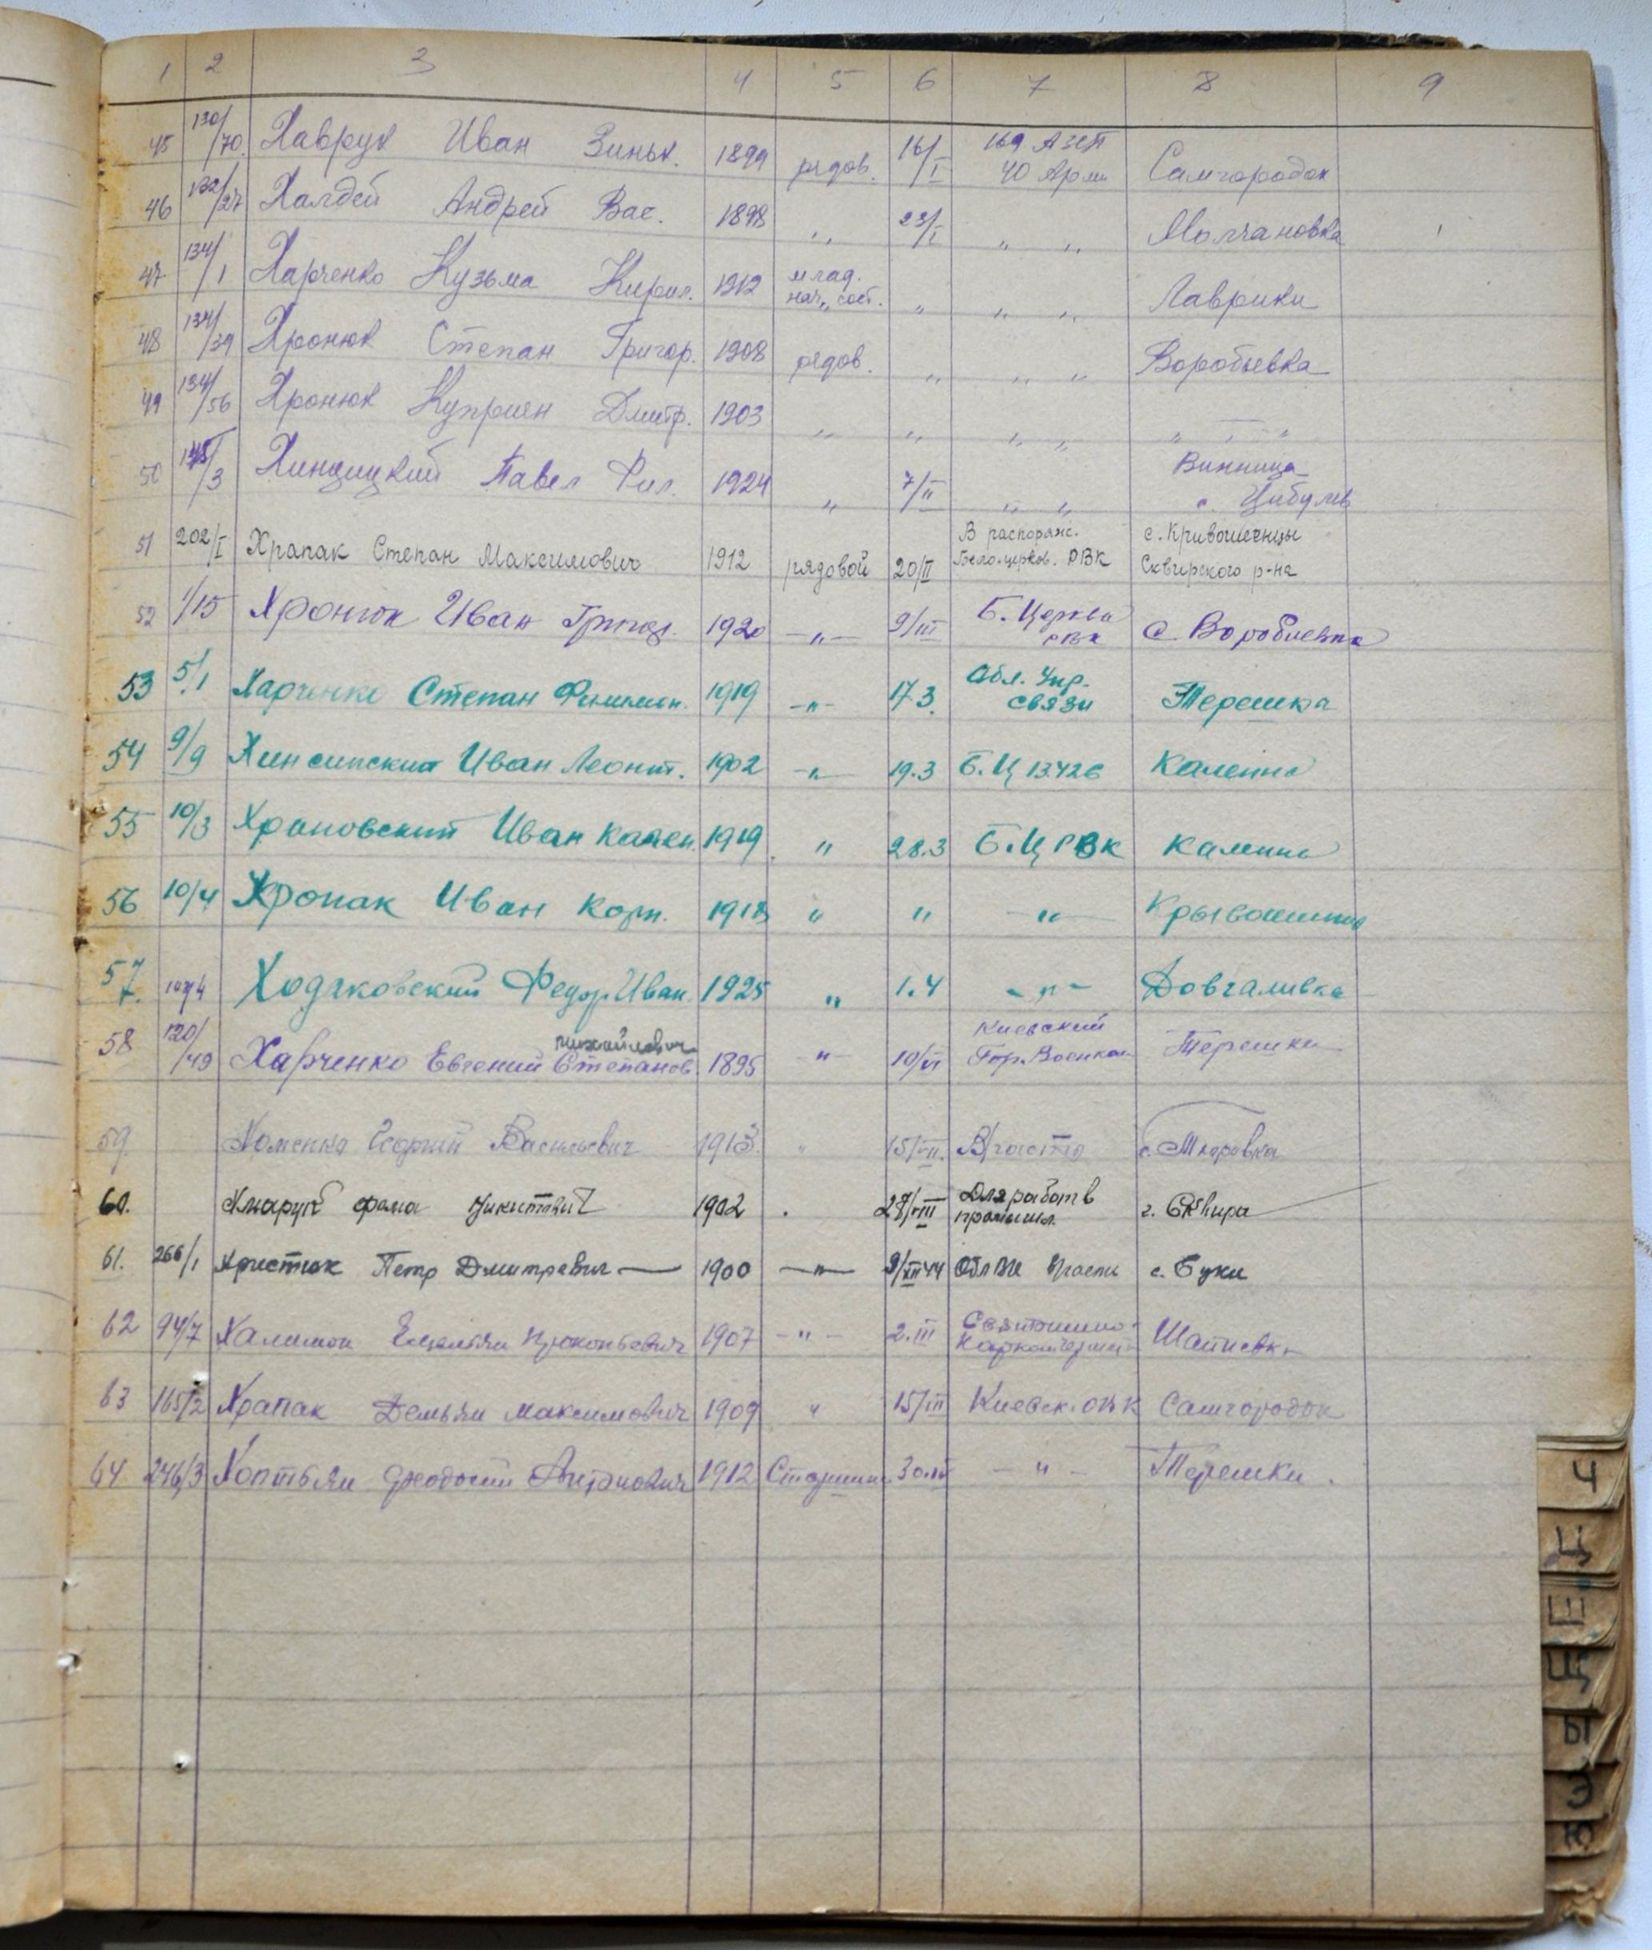 1 2 3 4 5 6 7 8 9
45 130/70 Хаврук Иван Зиньк. 1899 рядов. 16/I 169 АЗСП 40 Арми Самгородок
46 132/27 Халдей Андрей Вас. 1898 " 23/I " " Молчановка
47 134/1 Харченко Кузьма Кирил. 1912 млад. нач. сост. " " " Лаврики
48 134/39 Хронюк Степан Григор. 1908 рядов. " " " Воробьевка
49 134/56 Хронюк Куприян Дмитр. 1903 " " " " " "
50 /3 Павел Фил. 1924 " 7/II " " Винница с. Цибулев
51 202/I Храпак Степан Максимович 1912 рядовой 20/II В распоряж. Белоцерков. РВК с. Кривошеенцы Сквирского р-на
52 1/15 Хронюк Иван Григор. 1920 -"- 9/III Б. Церква РВК с. Воробиевка
53 5/1 Харченко Степан Филимон. 1919 -"- 17.3. Обл. Упр. связи Терешка
54 9/9 Иван Леонт. 1902 -"- 19.3 Б.Ц 13426 Каленна
55 10/3 Храновский Иван 1919 " 28.3 Б.Ц РВК Каленна
56 10/4 Хропак Иван Корн. 1918 " " -"-
57. Ходаковский Федор Иван. 1925 " 1.4 -"- Довгаливка
58 120/49 Харченко Евгений Степанов. Михайлович 1895 " 10/VI Киевский Гор. Военком Терешки
59. Хоменко Георгий Васильевич 1913 " 15/VII. В/часть с. Токаровка
60. Фома Никитович 1902 . 28/VIII Для работ в промышл. г. Сквира
61. 266/1 Христюк Петр Дмитревич — 1900 -"- 9/XII 44 Обл ВК в/части с. Буки
62 94/7 Халимон Емельян Прокопьевич 1907 -"- 2.III
63 165/2 Храпак Демьян Максимович 1909 " 15/III Киевск. ОВК Самгородок
64 246/3 Хоптьян Феодосий Антонович 1912 -"- Терешки.
Ч
Ц
Ш
Щ
Ы
Э
Ю